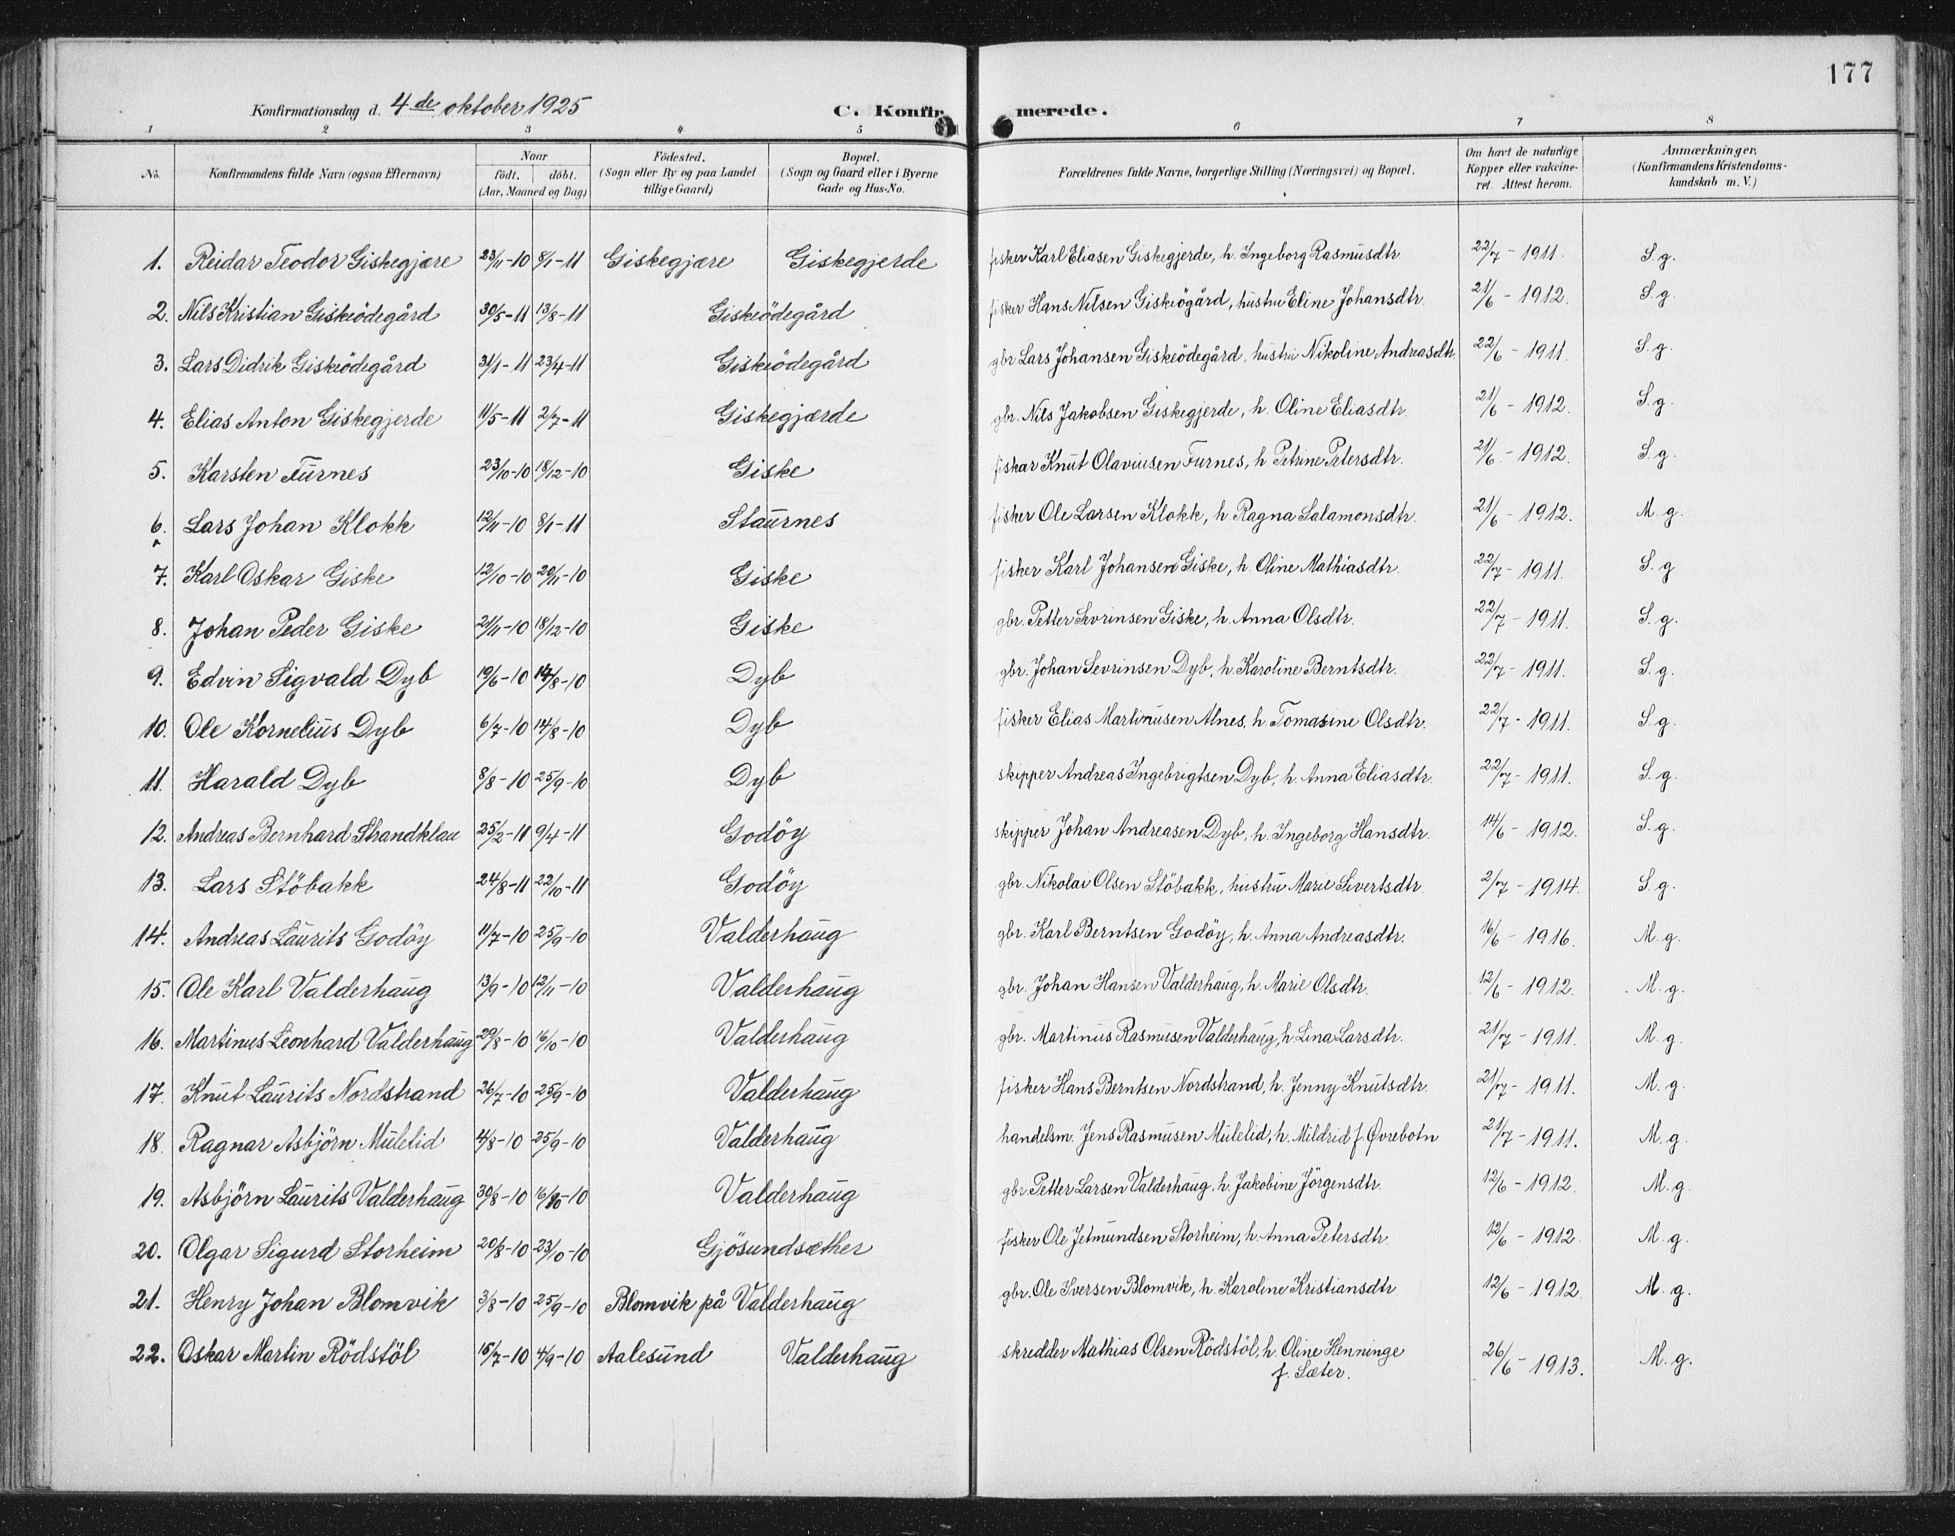 177
Konfirmationsdag d. 4de oktober 1925 C. Konfirmerede.
1 2 3 4 5 6 7 8
No. Konfirmandens fulde Navn (ogsaa Efternavn) Naar födt. döbt. (Aar, Maaned og Dag) Födested. (Sogn eller By og paa Landet tillige Gaard) Bopæl. (Sogn og Gaard eller i Byerne Gade og Hus-No. Forældrenes fulde Navne, borgerlige Stilling (Næringsvei) og Bopæl. Om havt de naturlige Kopper eller vakcineret. Attest herom. Anmærkninger. (Konfirmandens Kristendomskundskab m. V.)
1. Reidar Teodor Giskegjære 23/11-10 8/1-11 Giskegjære Giskegjerde fisker Karl Eliasen Giskegjerde, h. Ingeborg Rasmusdtr. 22/7-1911. S. g.
2. Nils Kristian Giskeödegård 30/5-11 13/8-11 Giskeödegård fisker Hans Nilsen Giskeögård, hustru Eline Johansdtr. 21/6-1912. S. g.
3. Lars Didrik Giskeödegård 31/1-11 23/4-11 Giskeödegård gbr. Lars Johansen Giskeödegård, hustru Nikoline Andreasdtr. 22/6-1911. S. g.
4. Elias Anton Giskegjerde 11/5-11 2/7-11 Giskegjærde gbr. Nils Jakobsen Giskegjerde, h. Oline Eliasdtr. 21/6-1912. S. g.
5. Karsten Furnes 23/10-10 18/12-10 Giske fiskar Knut Olaviusen Furnes, h. Petrine Petersdtr. 21/6-1912. S. g.
6. Lars Johan Klokk 12/11-10 8/1-11 Staurnes fisker Ole Larsen Klokk, h Ragna Salamonsdtr. 21/6-1912. M. g.
7. Karl Oskar Giske 12/10-10 20/11-10 Giske fisker Karl Johansen Giske, h. Oline Mathiasdtr. 22/7-1911. S. g
8. Johan Peder Giske 21/11-10 18/12-10 Giske gbr. Petter Sevrinsen Giske, h. Anna Olsdtr. 22/7-1911. S. g.
9. Edvin Sigvald Dyb 19/6-10 14/8-10 Dyb gbr. Johan Sevrinsen Dyb, h. Karoline Berntsdtr. 22/7-1911. S. g.
10. Ole Kornelius Dyb 6/7-10 14/8-10 Dyb fisker Elias Martinusen Alnes, h. Tomasine Olsdtr. 22/7-1911. S. g.
11. Harald Dyb 8/8-10 25/9-10 Dyb skipper Andreas Ingebrigtsen Dyb, h. Anna Eliasdtr. 22/7-1911. S. g.
12. Andreas Bernhard Strandklau 25/2-11 9/4-11 Godöy skipper Johan Andreasen Dyb, h. Ingeborg Hansdtr. 14/6-1912. S. g.
13. Lars Stöbakk 24/8-11 22/10-11 Godöy gbr. Nikolai Olsen Stöbakk, hustru Marie Sivertsdtr. 2/7-1914. S. g.
14. Andreas Laurits Godöy 11/7-10 25/9-10 Valderhaug gbr. Karl Berntsen Godöy, h. Anna Andreasdtr. 16/6-1916. M. g.
15. Ole Karl Valderhaug 13/9-10 12/11-10 Valderhaug gbr. Johan Hansen Valderhaug, h. Marie Olsdtr. 12/6-1912. M. g.
16. Martinus Leonhard Valderhaug 29/8-10 16/10-10 Valderhaug gbr. Martinus Rasmusen Valderhaug, h. Lina Larsdtr. 21/7-1911. M. g.
17. Knut Laurits Nordstrand 26/7-10 25/9-10 Valderhaug fisker Hans Berntsen Nordstrand, h. Jenny Knutsdtr. 21/7-1911. M. g.
18. Ragnar Asbjörn Mulelid 4/8-10 25/9-10 Valderhaug handelsm. Jens Rasmusen Mulelid, h. Mildrid f. Øvrebotn 21/7-1911. M. g.
19. Asbjörn Laurits Valderhaug 30/8-10 16/10-10 Valderhaug gbr. Petter Larsen Valderhaug, h. Jakobine Jörgensdtr. 12/6-1912. M. g.
20. Olgar Sigurd Storheim 20/8-10 23/10-10 Gjösundsæther fisker Ole Jetmundsen Storheim, h. Anna Petersdtr. 12/6-1912. M. g.
21. Henry Johan Blomvik 3/8-10 25/9-10 Blomvik på Valderhaug gbr. Ole Iversen Blomvik, h. Karoline Kristiansdtr. 12/6-1912. M. g.
22. Oskar Martin Rödstöl 15/7-10 4/9-10 Aalesund Valderhaug skredder Mathias Olsen Rödstöl, h. Oline Henninge f. Sæter. 26/6-1913. M. g.